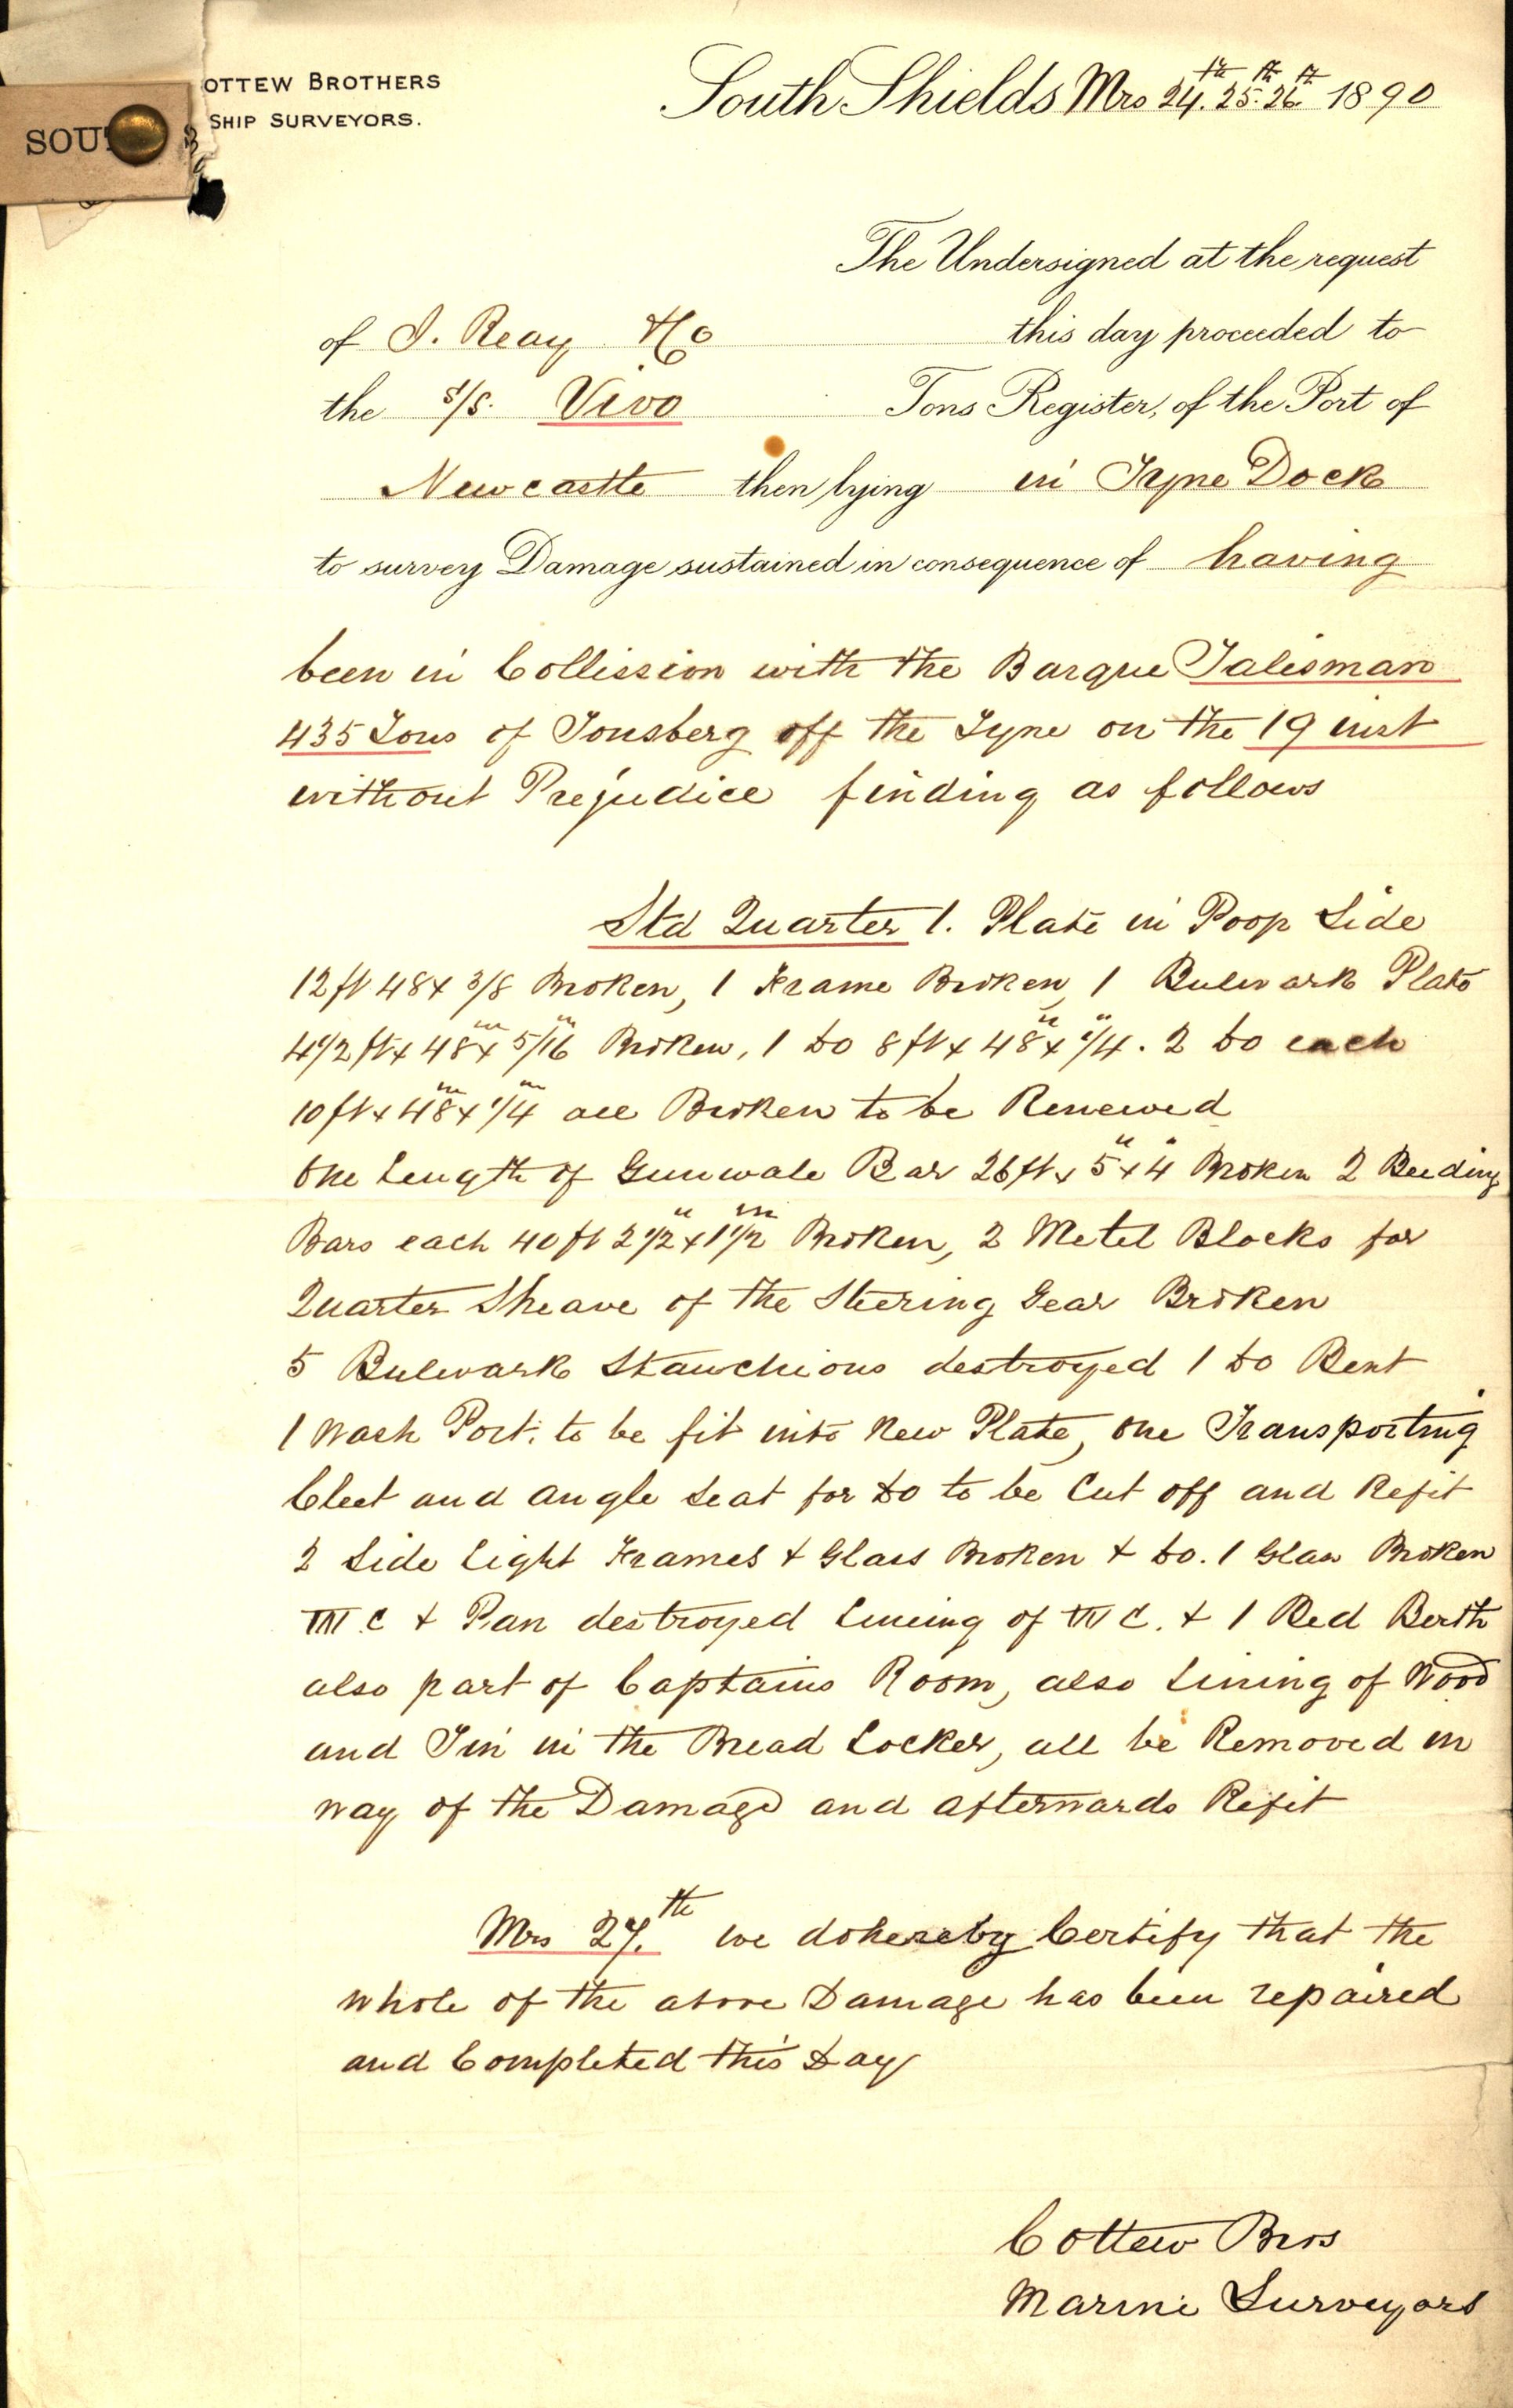 OTTEW BROTHERS
SHIP SURVEYORS.
SOU
South Shields Mrs 24th. 25th. 26th 1890
The Undersigned at the request
of J. Reay & Co this day proceeded to
the s/s. Vivo Tons Register, of the Port of
Newcastle then lying in Tyne Dock
to survey Damage sustained in consequence of having
been in Collission with the Barque Talisman
435 Tons of Tonsberg off the Tyne on the 19 inst
without Prejudice finding as follows
Std Quarter 1. Plate in Poop Side
12 ft 48 x 3/8 Broken, 1 Frame Broken, 1 Bulwark Plate
4 1/2 ft x 48in x 5/16in Broken, 1 Do 8 ft x 48" x 1/4". 2 Do each
10 ft x 48in x 1/4in all Broken to be Renewed
One Length of Gunwale Bar 26 ft x 5" x 4" Broken 2 Beeding
Bars each 40 ft 2 1/2" x 1 1/2in Broken, 2 Metel Blocks for
Quarter Sheave of the Steering Gear Broken
5 Bulwark Stanchions destroyed 1 Do Bent
1 Wash Port. to be fit into New Plate, One Transporting
Cleet and angle Seat for Do to be Cut off and Refit
2 Side Light Frames & Glass Broken & Do. 1 Glass Broken
W.C & Pan destroyed Lineing of W C. & 1 Bed Berth
also part of Captains Room, also Lining of Wood
and Tin in the Bread Locker, all be Removed in
way of the Damage and afterwards Refit
Mrs 27.th we do hereby Certify that the
whole of the above Damage has been repaired
and Completed this Day
Cottew Bros
Marine Surveyors